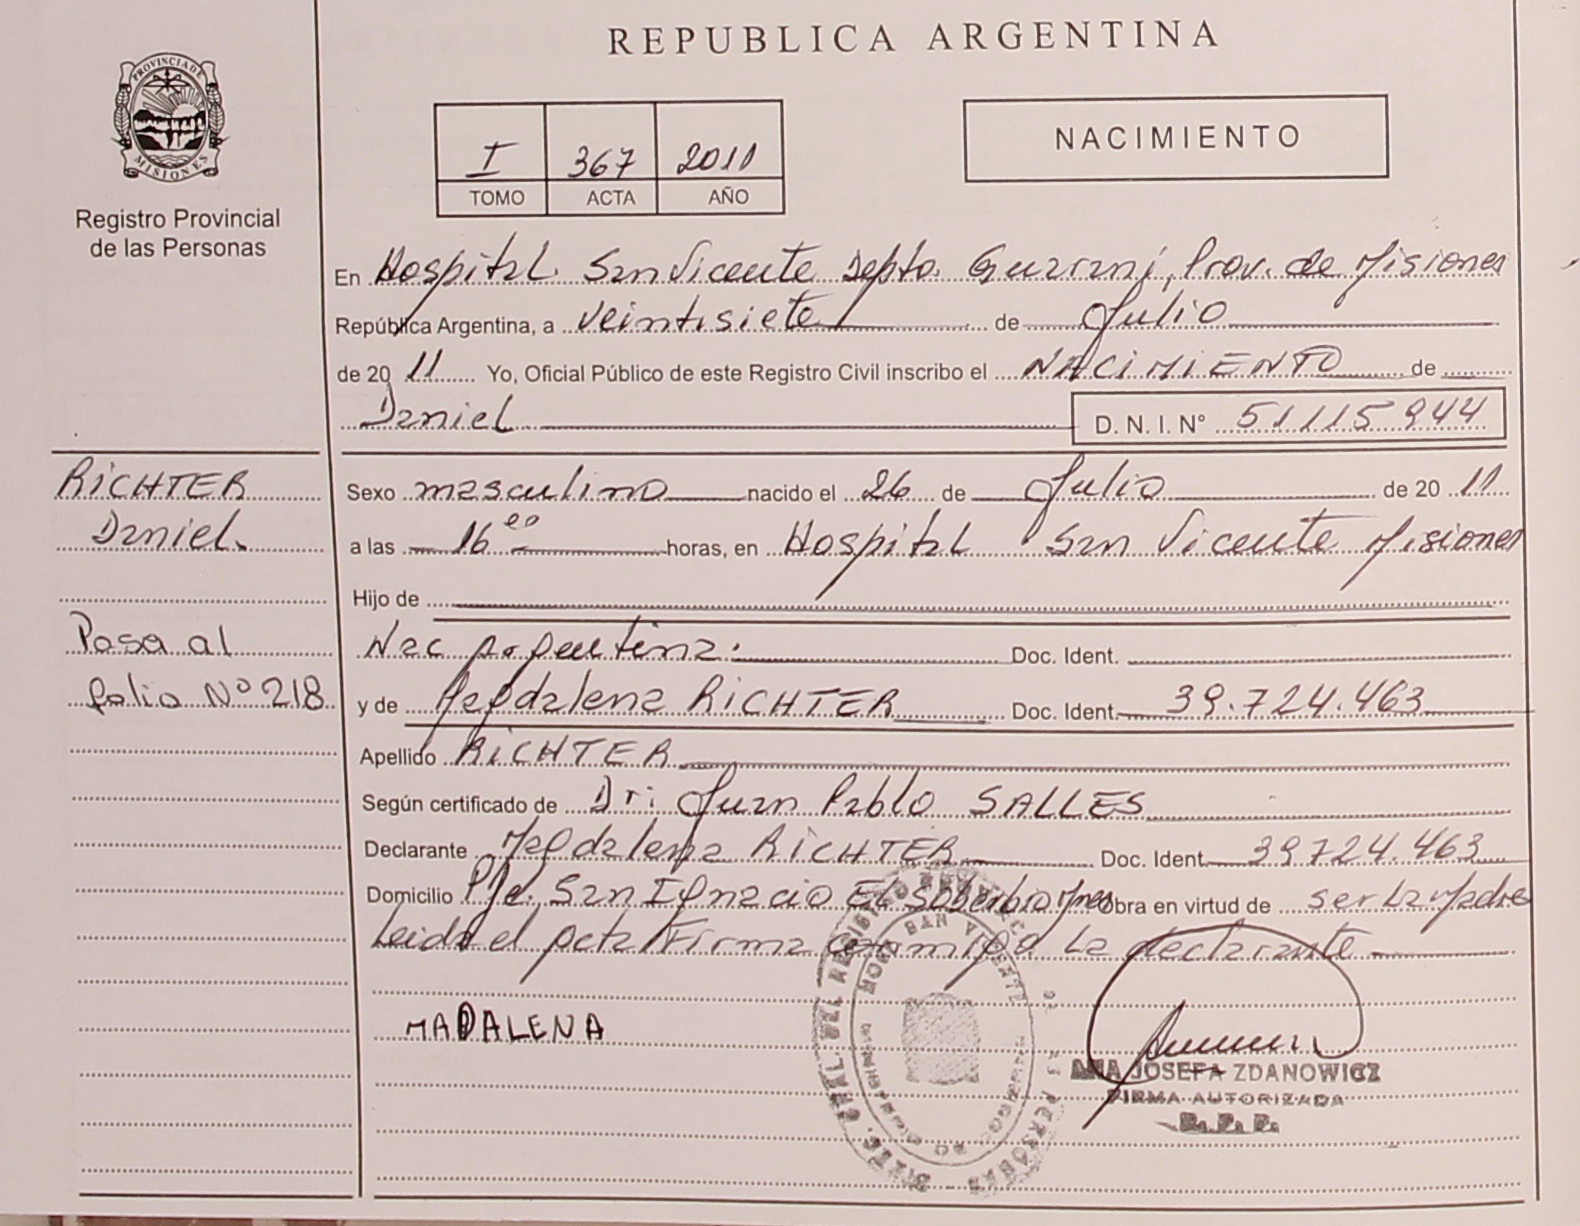 REPUBLICA ARGENTINA
PROVINCIA DE
MISIONES
Registro Provincial
de las Personas
I 367 2011
TOMO ACTA AÑO
NACIMIENTO
En Hospital San Vicente Depto. Guaraní, Prov. de Misiones
República Argentina, a veintisiete de Julio
de 20 11 Yo, Oficial Público de este Registro Civil inscribo el NACIMIENTO de
Daniel D. N. I. N° 51115944
RICHTER
Daniel.
Pasa al
folio Nº 218
Sexo masculino nacido el 26 de Julio de 20 11
a las 16 horas, en Hospital San Vicente Misiones
Hijo de
Nac Argentina. Doc. Ident.
y de Magdalena RICHTER Doc. Ident. 39.724.463
Apellido RICHTER
Según certificado de Dr. Juan Pablo SALLES
Declarante Magdalena RICHTER Doc. Ident. 39724.463
Domicilio Pje. San Ignacio El Soberbio Mnes Obra en virtud de ser La Madre
Leida el acta Firma conmigo La declarante
MADALENA
ANA JOSEFA ZDANOWICZ
FIRMA AUTORIZADA
R.P.P.